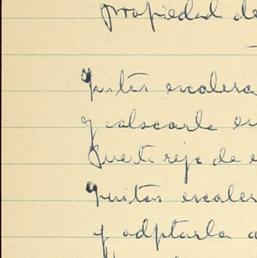 propiedad de
Quitar escalera
y colocarla en
Puerta reja de e
Quitar escaler
y adptarla a